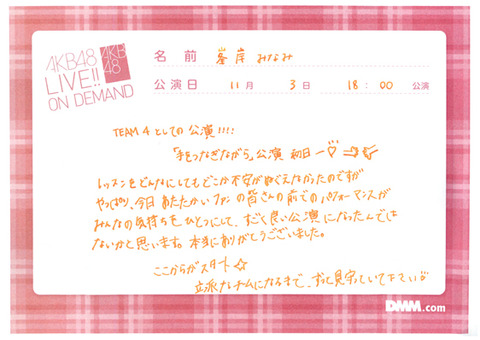 AKB48
LIVE!!
ON DEMAND
AKB
48
名前 峯岸 みなみ
公演日 11月 3日 18:00 公演
TEAM 4 としての公演!!!!
「手をつなぎながら」公演 初日ー♡
レッスンをどんなにしてもどこか不安がぬぐえなかったのですが
やっぱり、今日 あたたかいファンの皆さんの前でのパフォーマンスが
みんなの気持ちをひとつにして、すごく良い公演になったんでは
ないかと思います。本当にありがとうございました。
ここからがスタート☆
立派なチームになるまで、ずっと見守っていて下さい
DMM.com